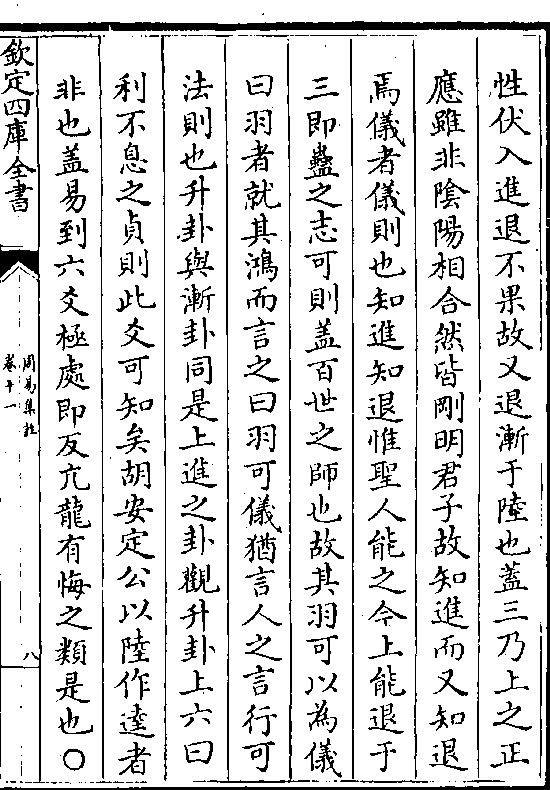 性伏入進退不果故又退漸于陸也蓋三乃上之正
應雖非陰陽相合然皆剛明君子故知進而又知退
焉儀者儀則也知進知退惟聖人能之今上能退于
三即蠱之志可則蓋百世之師也故其羽可以為儀
曰羽者就其鴻而言之曰羽可儀猶言人之言行可
法則也升卦與漸卦同是上進之卦觀升卦上六曰
利不息之貞則此爻可知矣胡安定公以陸作逵者
非也蓋易到六爻極處即反亢龍有悔之類是也○
欽定四庫全書
周易集註
卷十一
八